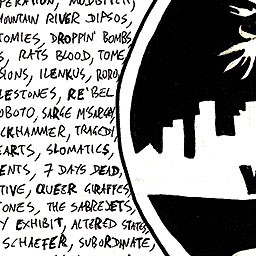 PERATION, MODBITCH,
MOUNTAIN RIVER DIPSOS,
TOMIES, DROPPIN' BOMBS,
S, RATS BLOOD, TOME,
SIONS, ILENKUS, RORO,
LESTONES, RE'BEL
OBOTO, SARGE M'SARGE,
CKHAMMER, TRAGEDY,
EARTS, SLOMATICS,
ENTS, 7 DAYS DEAD,
TIVE, QUEER GIRAFFES,
TONES, THE SABREJETS,
Y EXHIBIT, ALTERED STATES,
SCHAEFER, SUBORDINATE,